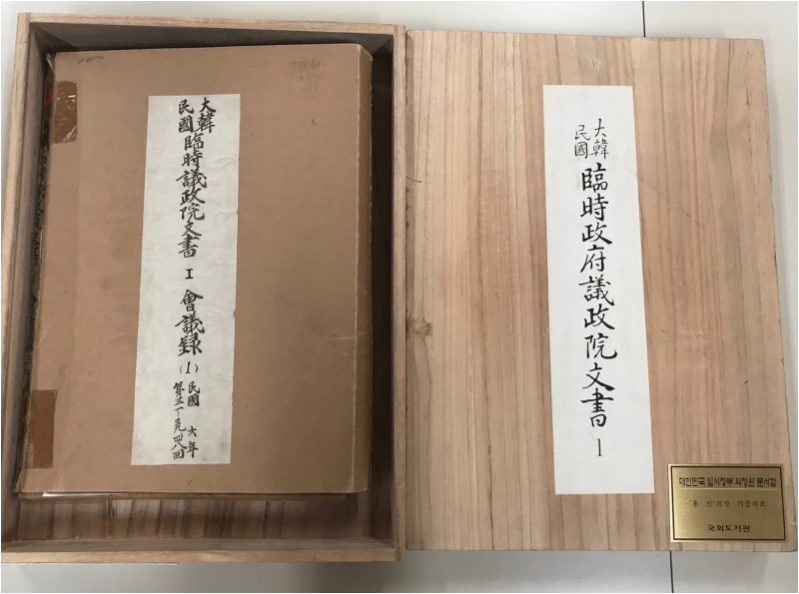 大韓
民國
臨時議政院文書 I 會議録 (1)
民國 年
大韓
民國
臨時政府議政院文書 1
대한민국 임시정부 의정원 문서함
-"홍 진"의장 기증자료
국회도서관